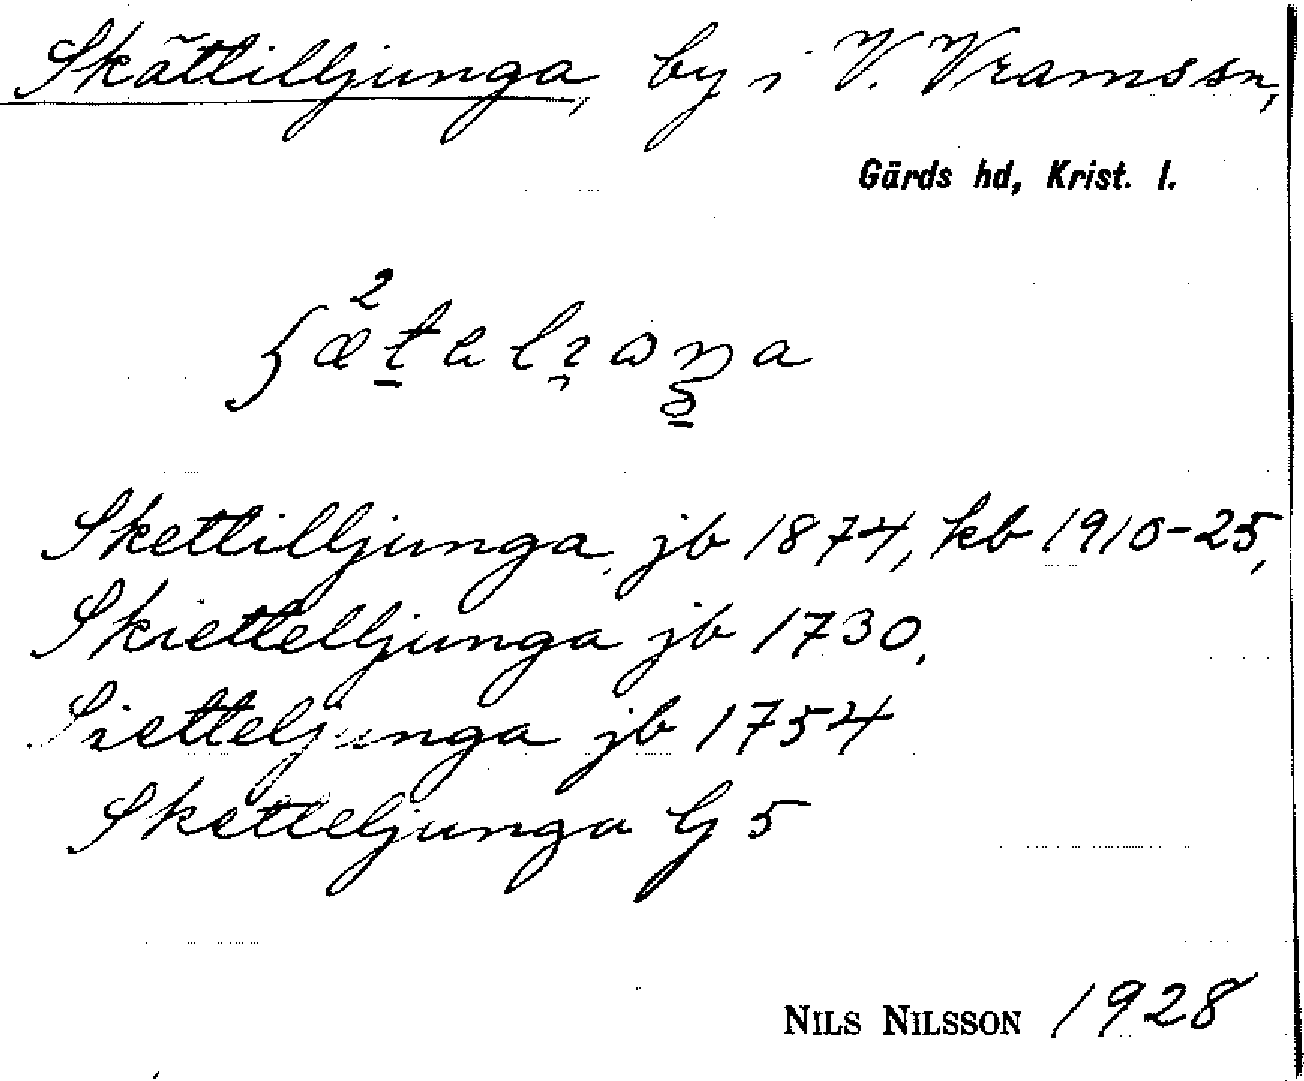 Skättilljunga, by i V. Vramssn,
Gärds hd, Krist. l.
Skettilljunga, jb 1874, kb 1910-25,
Skiettelljunga jb 1730,
Sietteljunga jb 1754
Sketteljunga G 5
NILS NILSSON 1928